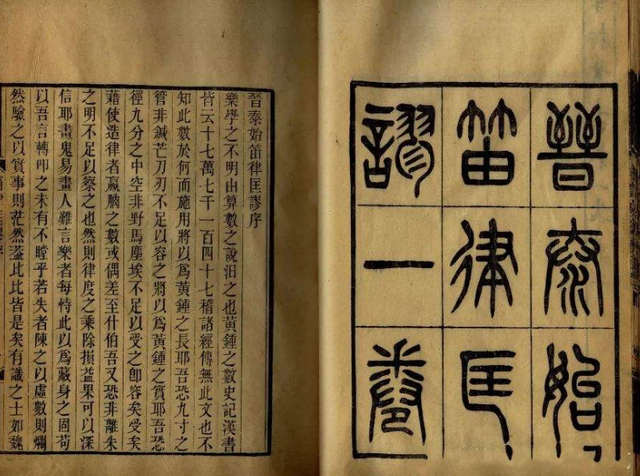 晉泰始
笛律匡
謬一卷
晉泰始笛律匡謬序
樂學之不明由算數之說汨之也黃鍾之數史記漢書
皆云十七萬七千一百四十七稽諸經傳無此文也不
知此數於何而施用將以爲黃鍾之長耶吾恐九寸之
管非鍼芒刀刃不足以容之將以爲黃鍾之實耶吾恐
徑九分之中空非野馬塵埃不足以受之卽容矣受矣
藉使造律者贏朒之數或偶差至什伯吾又恐非離朱
之明不足以察之也然則律度之乘除損益果可以深
信耶畫鬼易畫人難言樂者每恃此以爲藏身之固苟
以吾言轉叩之未有不瞠乎若失者陳之以虛數則爛
然驗之以實事則茫然蓋比比皆是矣有識之士如魏